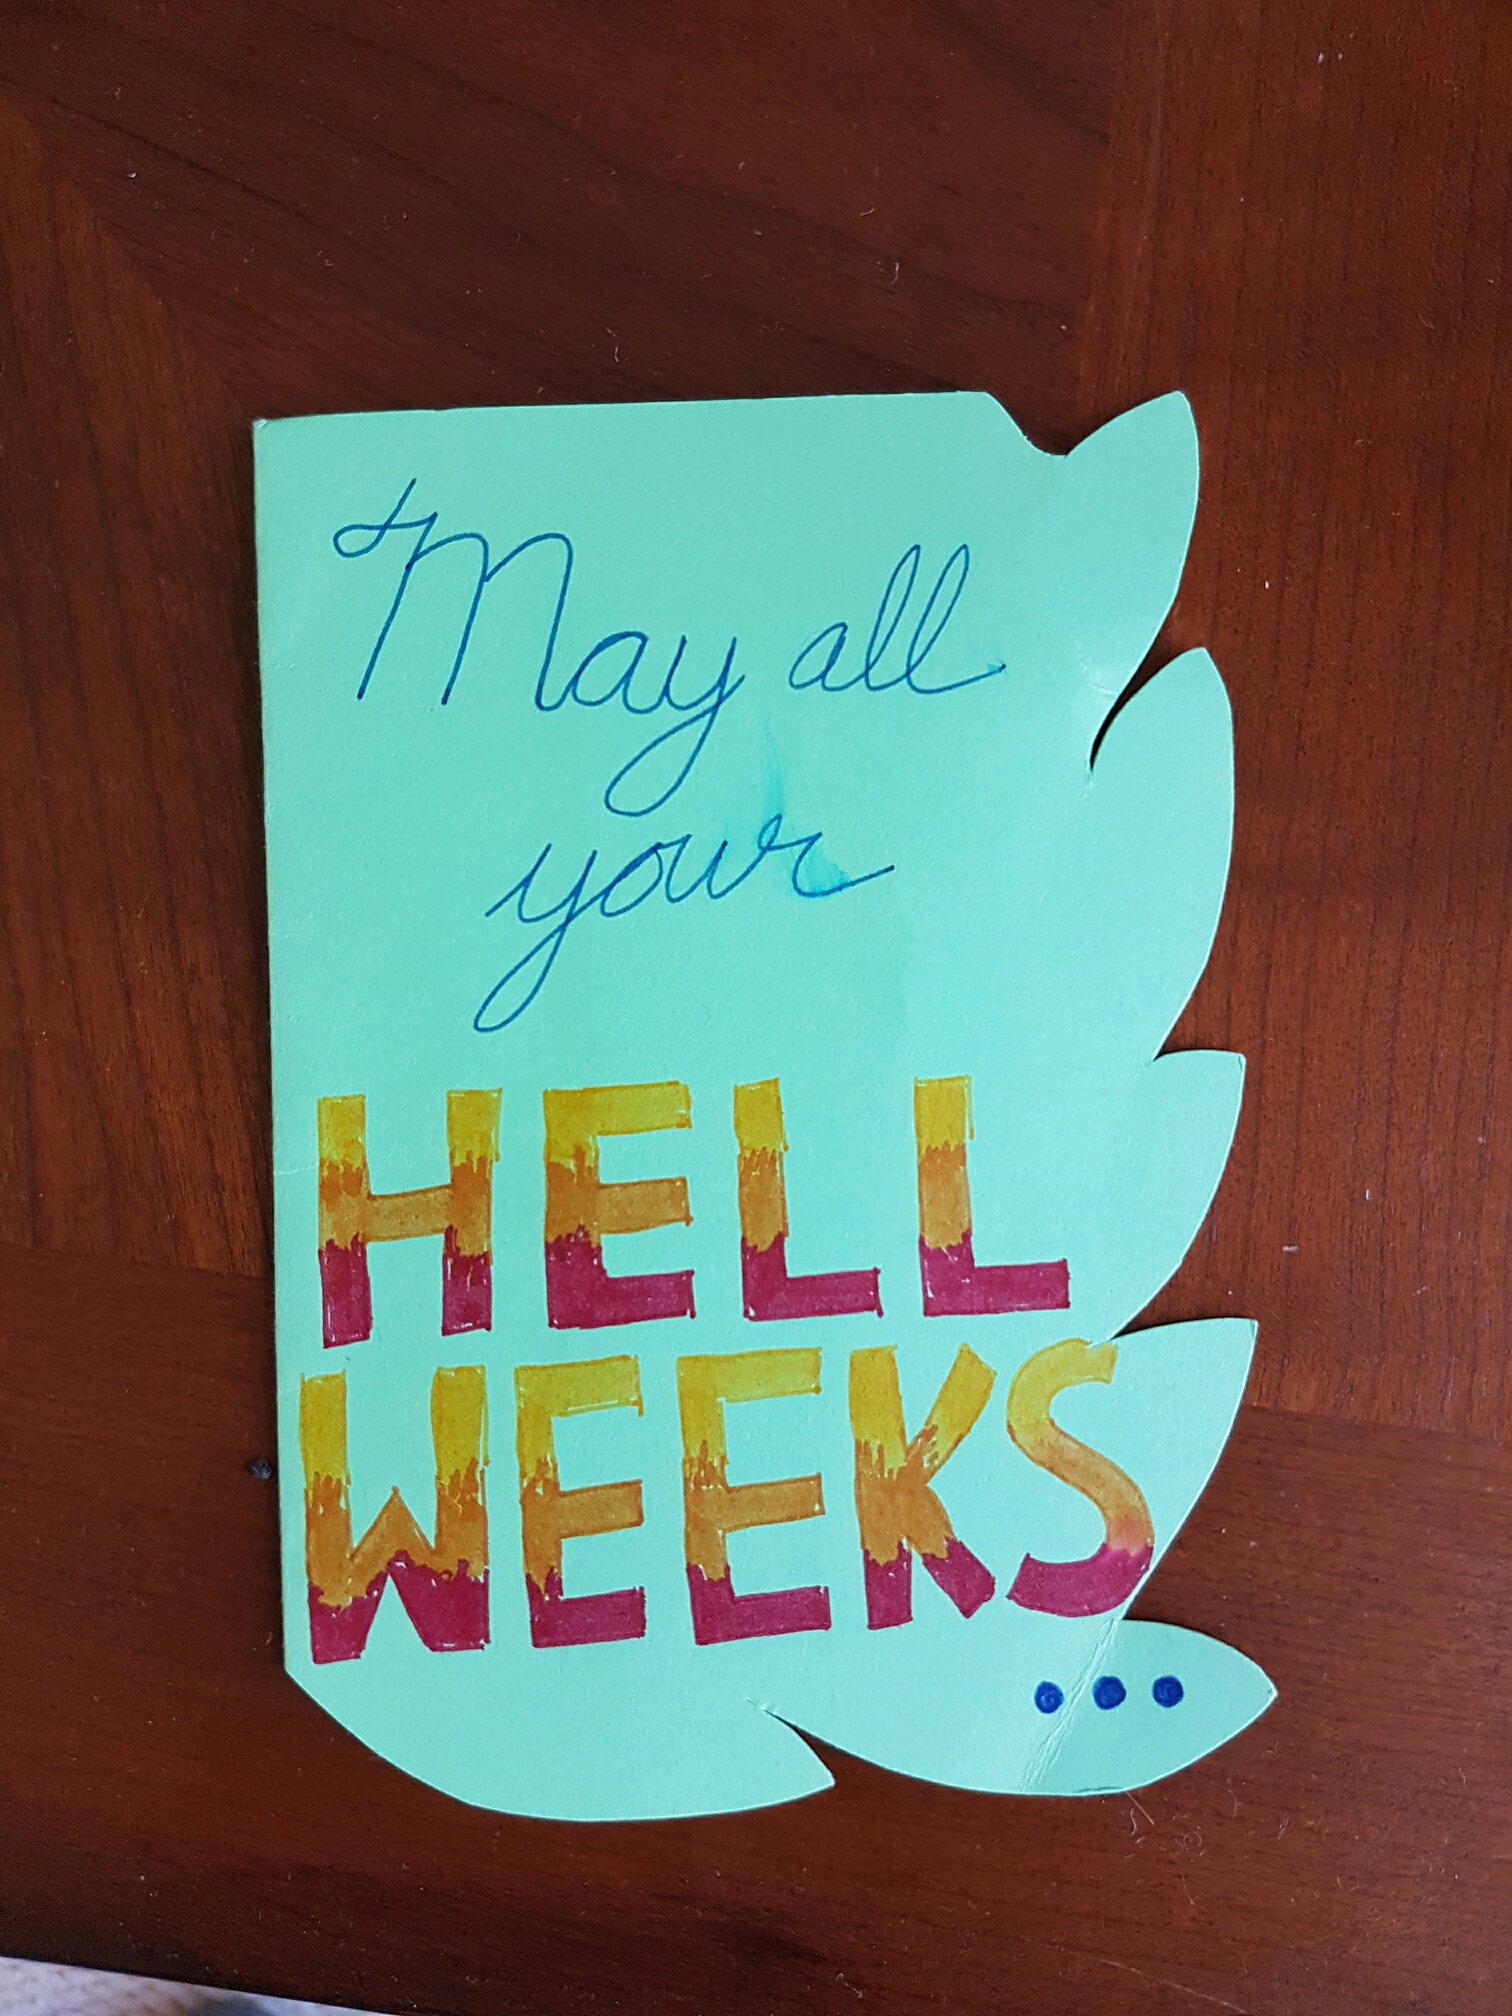 May all
your
HELL
WEEKS
...